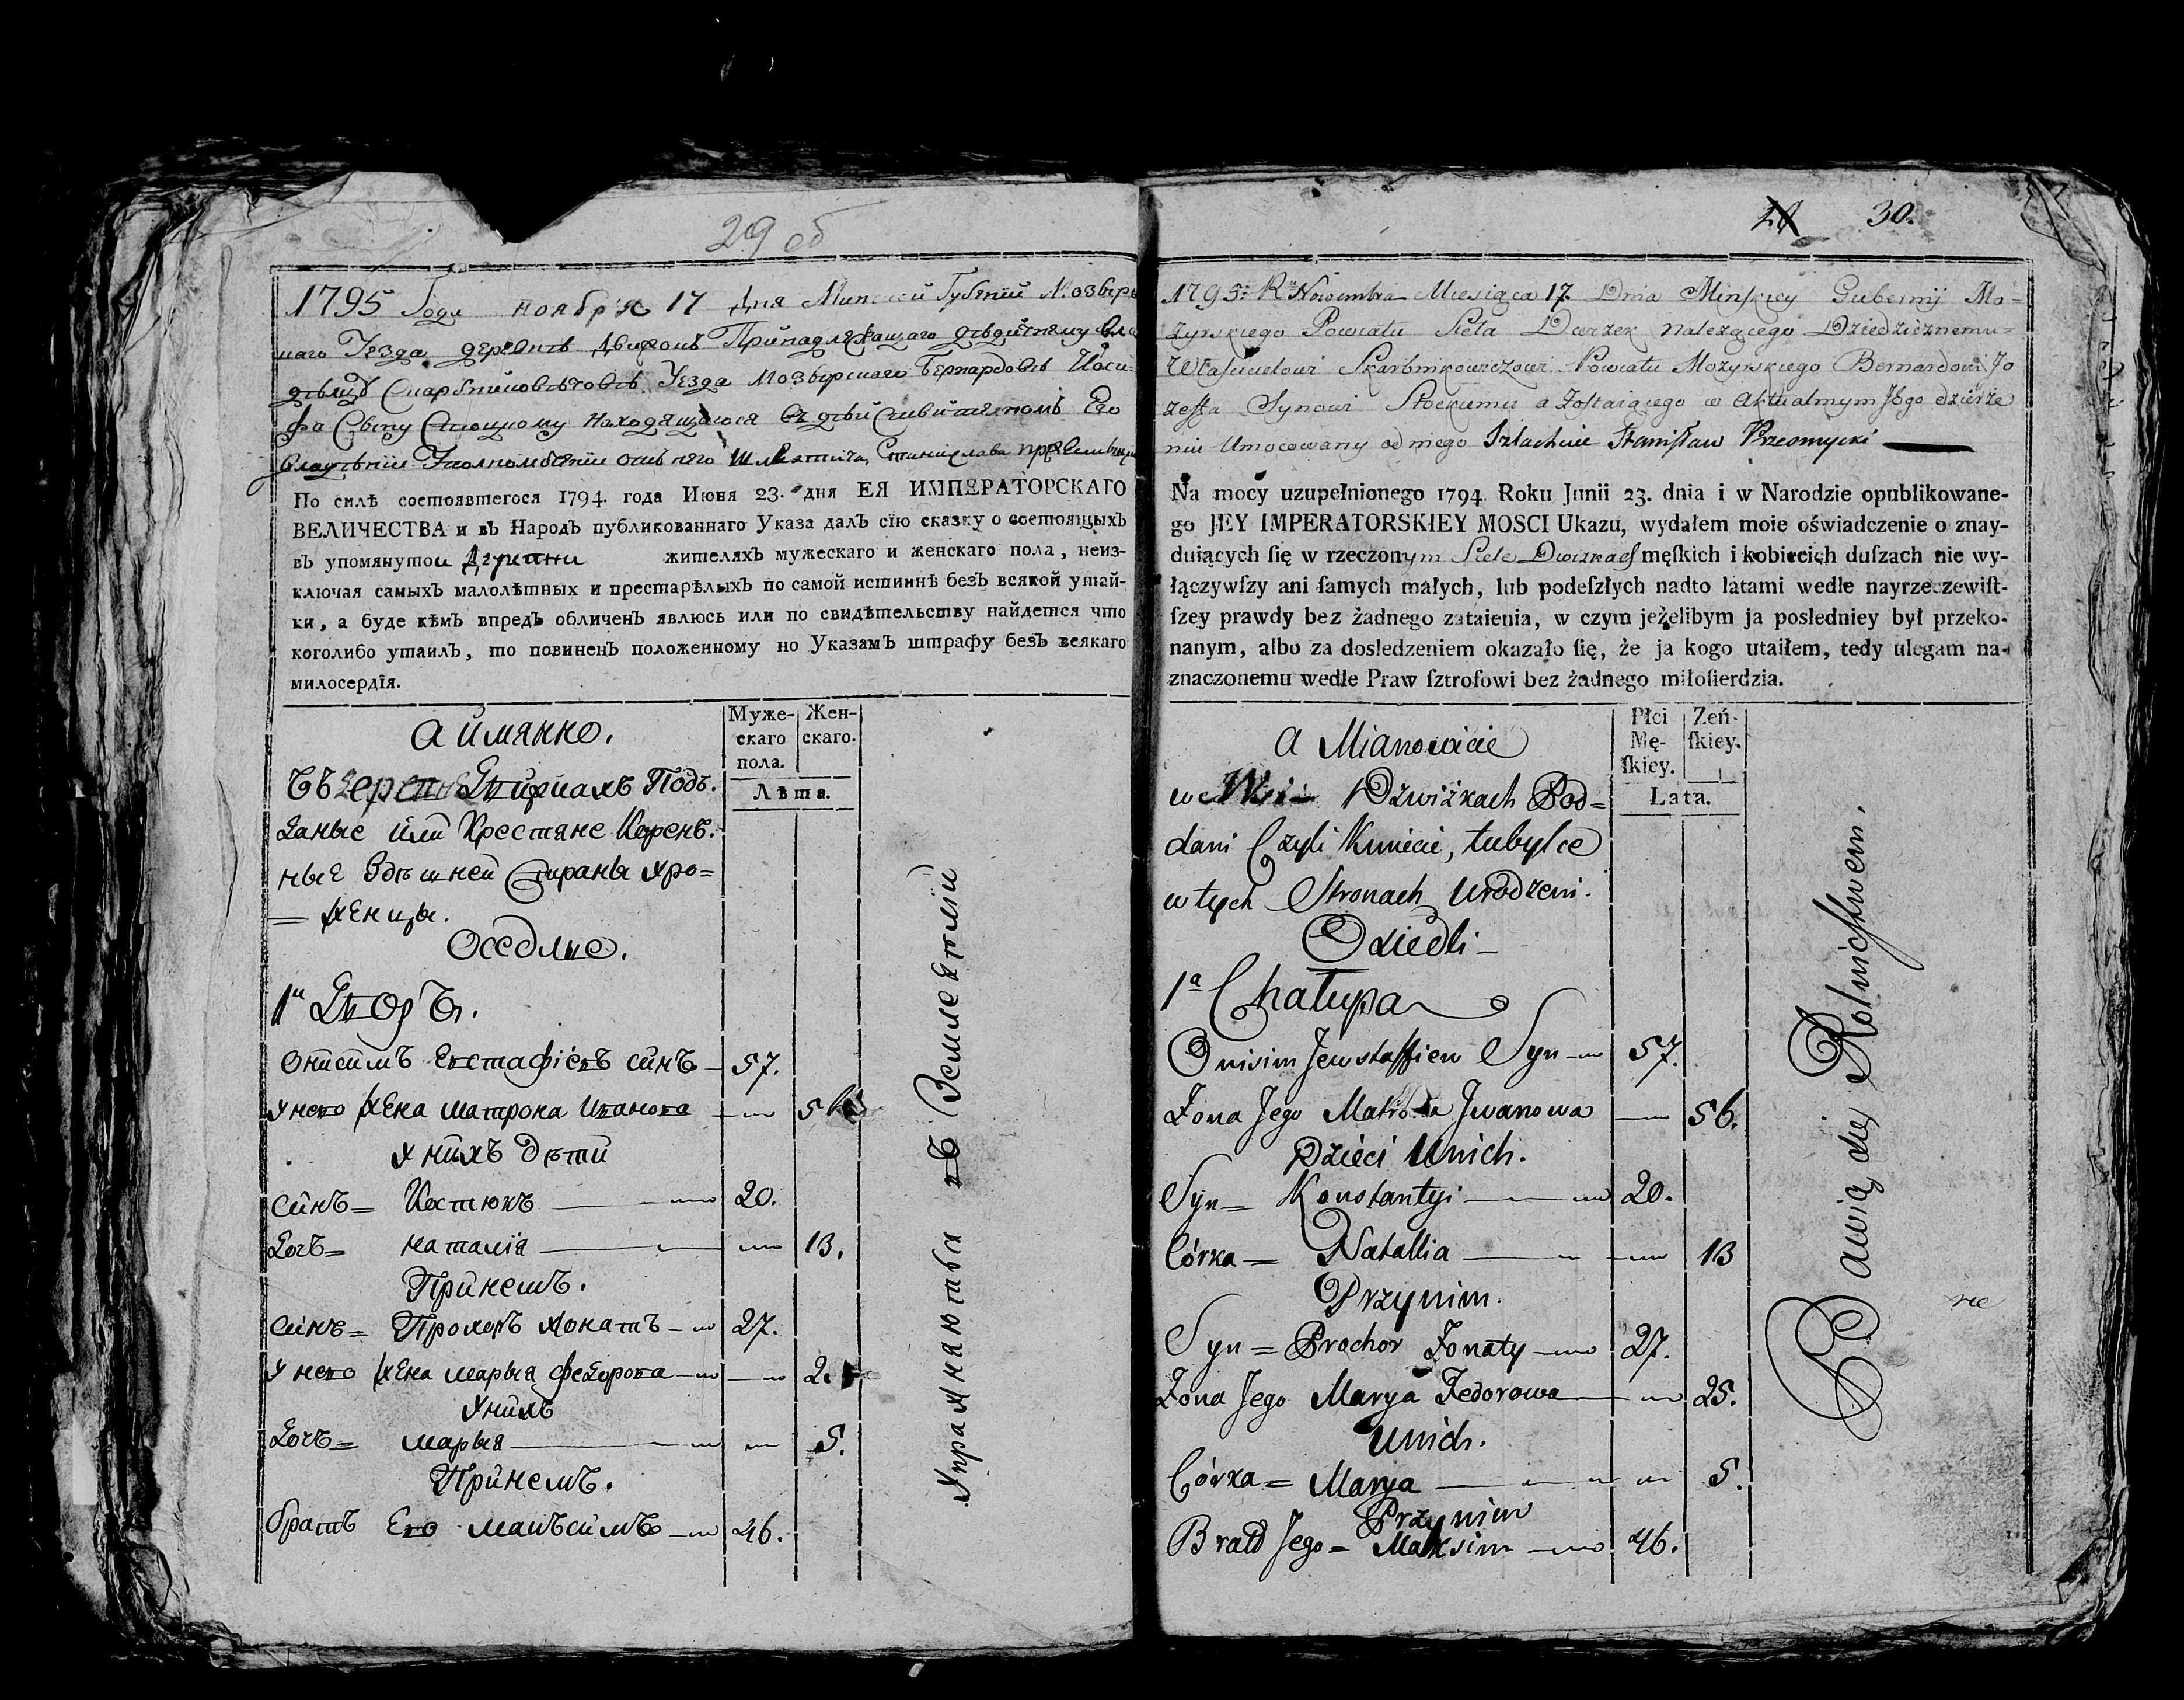 29 об
1795 Года ноября 17 Дня Минской Губернїи Мозыр
скаго Уезда деревни Движокъ Принадлежащаго дѣдичному вла
дѣльцу Скарбниковичовѣ Уезда Мозырскаго Бернардовѣ Иоси
фа Сыну Слоцкому находящагося въ дѣйствительномъ Его
владѣнїи Уполномоченїи отъ него Шляхтича, Станислава
По силѣ состоявшегося 1794. года Июня 23. дня ЕЯ ИМПЕРАТОРСКАГО
ВЕЛИЧЕСТВА и въ Народъ публикованнаго Указа далъ сїю сказку о состоящыхъ
въ упомянутои Деревни жителяхъ мужескаго и женскаго пола, неиз-
ключая самыхъ малолѣтных и престарѣлыхъ по самой истиннѣ безъ всякой утай-
ки, а буде кѣмъ впредь обличенъ явлюсь или по свидѣтельству найдется что
коголибо утаилъ, то повиненъ положенному по Указамъ штрафу безъ всякаго
милосердїя.
а иймянно.
Муже-скаго пола. Жен-скаго.
Лѣта.
въ Движкахъ Подъ.
даные или Крестяне Корень.
ные Здѣшней Стираны Уро=
=женцы.
Оседлые.
1й Дворъ.
Онисимъ Евстафіевъ синъ 57.
Унего жена Матрона Иванова 56
Унихъ дети
синъ= Костюкъ 20.
Дочъ= Наталія 13.
Принемъ.
синъ= Прохоръ Жонатъ 27.
Унего жена Марыя Федорова 2
Унихъ
Дочъ= Марыя 5.
Принемъ.
братъ Его Макъсимъ 46.
Упражнаютъся въ Земледѣлїи
30.
1795: Rku Nowembra Miesiąca 17. Dnia Minskiey Gubernij Mo=
zyrskiego Powiatu Sieła Dwizek należącego Dziedzicznemu=
Właścicielowi Skarbnikowiczowi Powiatu Mozyrskiego Bernardowi Jo
zeffa Synowi Słockiemu a Zostaiącego w Aktualnym Jego dzierże
niu Umocowany od niego Szlachcic Stanisław Przesmycki
Na mocy uzupełnionego 1794 Roku Junii 23. dnia i w Narodzie opublikowane-
go JEY IMPERATORSKIEY MOSCI Ukazu, wydałem moie oświadczenie o znay-
duiących ſię w rzeczonym Siele Dwizkach męſkich i kobiecich duſzach nie wy-
łączywſzy ani ſamych małych, lub podeſzłych nadto latami wedle nayrzeczewiſt-
ſzey prawdy bez żadnego zataienia, w czym jeżelibym ja posledniey był przeko-
nanym, albo za dosledzeniem okazało ſię, że ja kogo utaiłem, tedy ulegam na-
znaczonemu wedle Praw ſztrofowi bez żadnego miłoſierdzia.
a Mianowicie
Płci Mę-ſkiey. Zeń-ſkiey.
Lata.
w Dzwiżkach Pod=
dani Czyli Kmiecie, tubylce
w tych Stronach Urodzeni.
Osiedli
1a Chałupa
Onisim Jewstaffiew Syn 57.
Zona Jego Matrona Jwanowa 56.
Dzieci Unich.
Syn= Konstantyi 20.
Córka= Natallia 13
Przynim.
Syn= Prochor Zonaty 27.
Zona Jego Marya Fedorowa 25.
Unich.
Córka= Marya 5.
Przynim
Bratd Jego= Maksim 46.
Bawią się Rolnictwem.